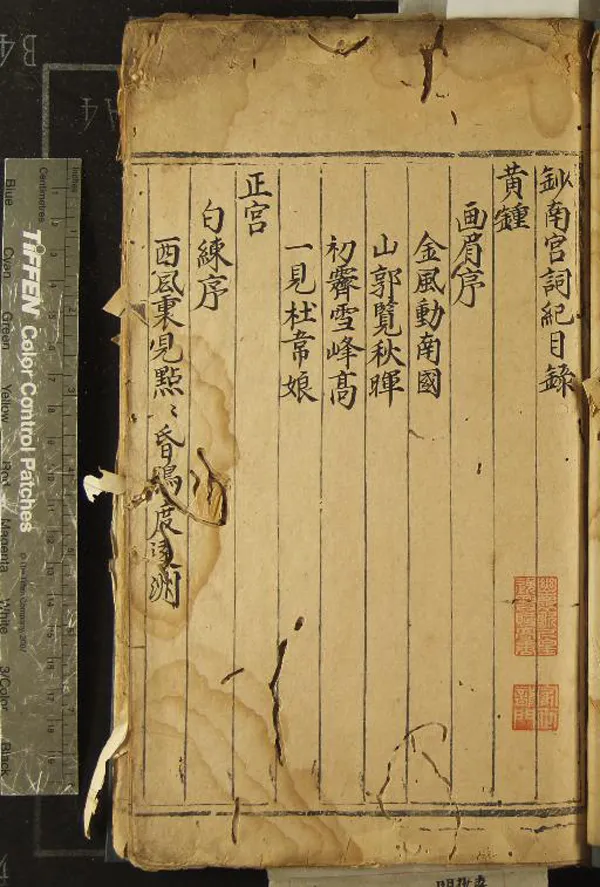 鈔南宮詞紀目錄
黃鍾
画眉序
金風動南國
山郭覽秋暉
初霽雪峰高
一見杜韋娘
正宮
白練序
西風裏見點〻昏鴉度遠洲
TIFFEN Color Control Patches
Blue
Cyan
Green
Yellow
Red
Magenta
White
3/Color
Black
Centimetres
Inches
B4
A4